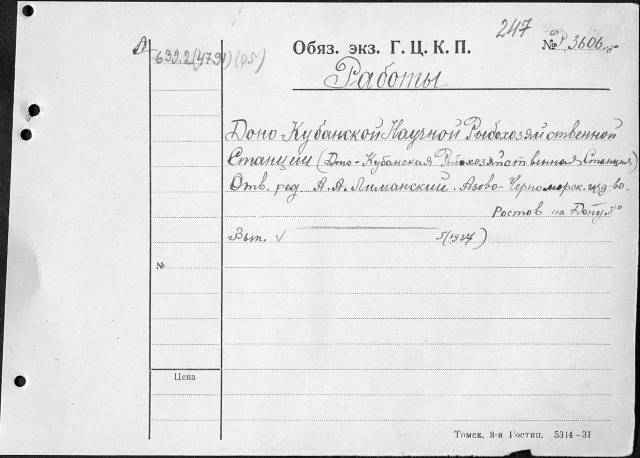 247
Обяз. экз. Г. Ц. К. П. № Р 3606 8°
639.2(479) (05)
Работы
Доно-Кубанской Научной Рыбохозяйственной
Станции (Доно-Кубанская Рыбохозяйственная Станция)
Отв. ред. А. А. Лиманский. Азово-Черноморск. изд-во.
Ростов на Дону 8°
Вып. V 5 (1937)
№
Цена
Томск. 3-я Гостип. 5314-31